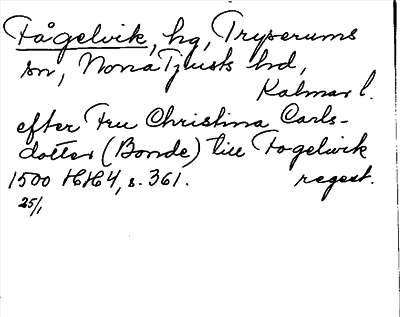 Fågelvik, hg, Tryserums
sn, Norra Tjusts hd,
Kalmar l.
efter Fru Christina Carls-
dotter (Bonde) till Fogelwik
1500 HH4, s. 361. regest.
25/1